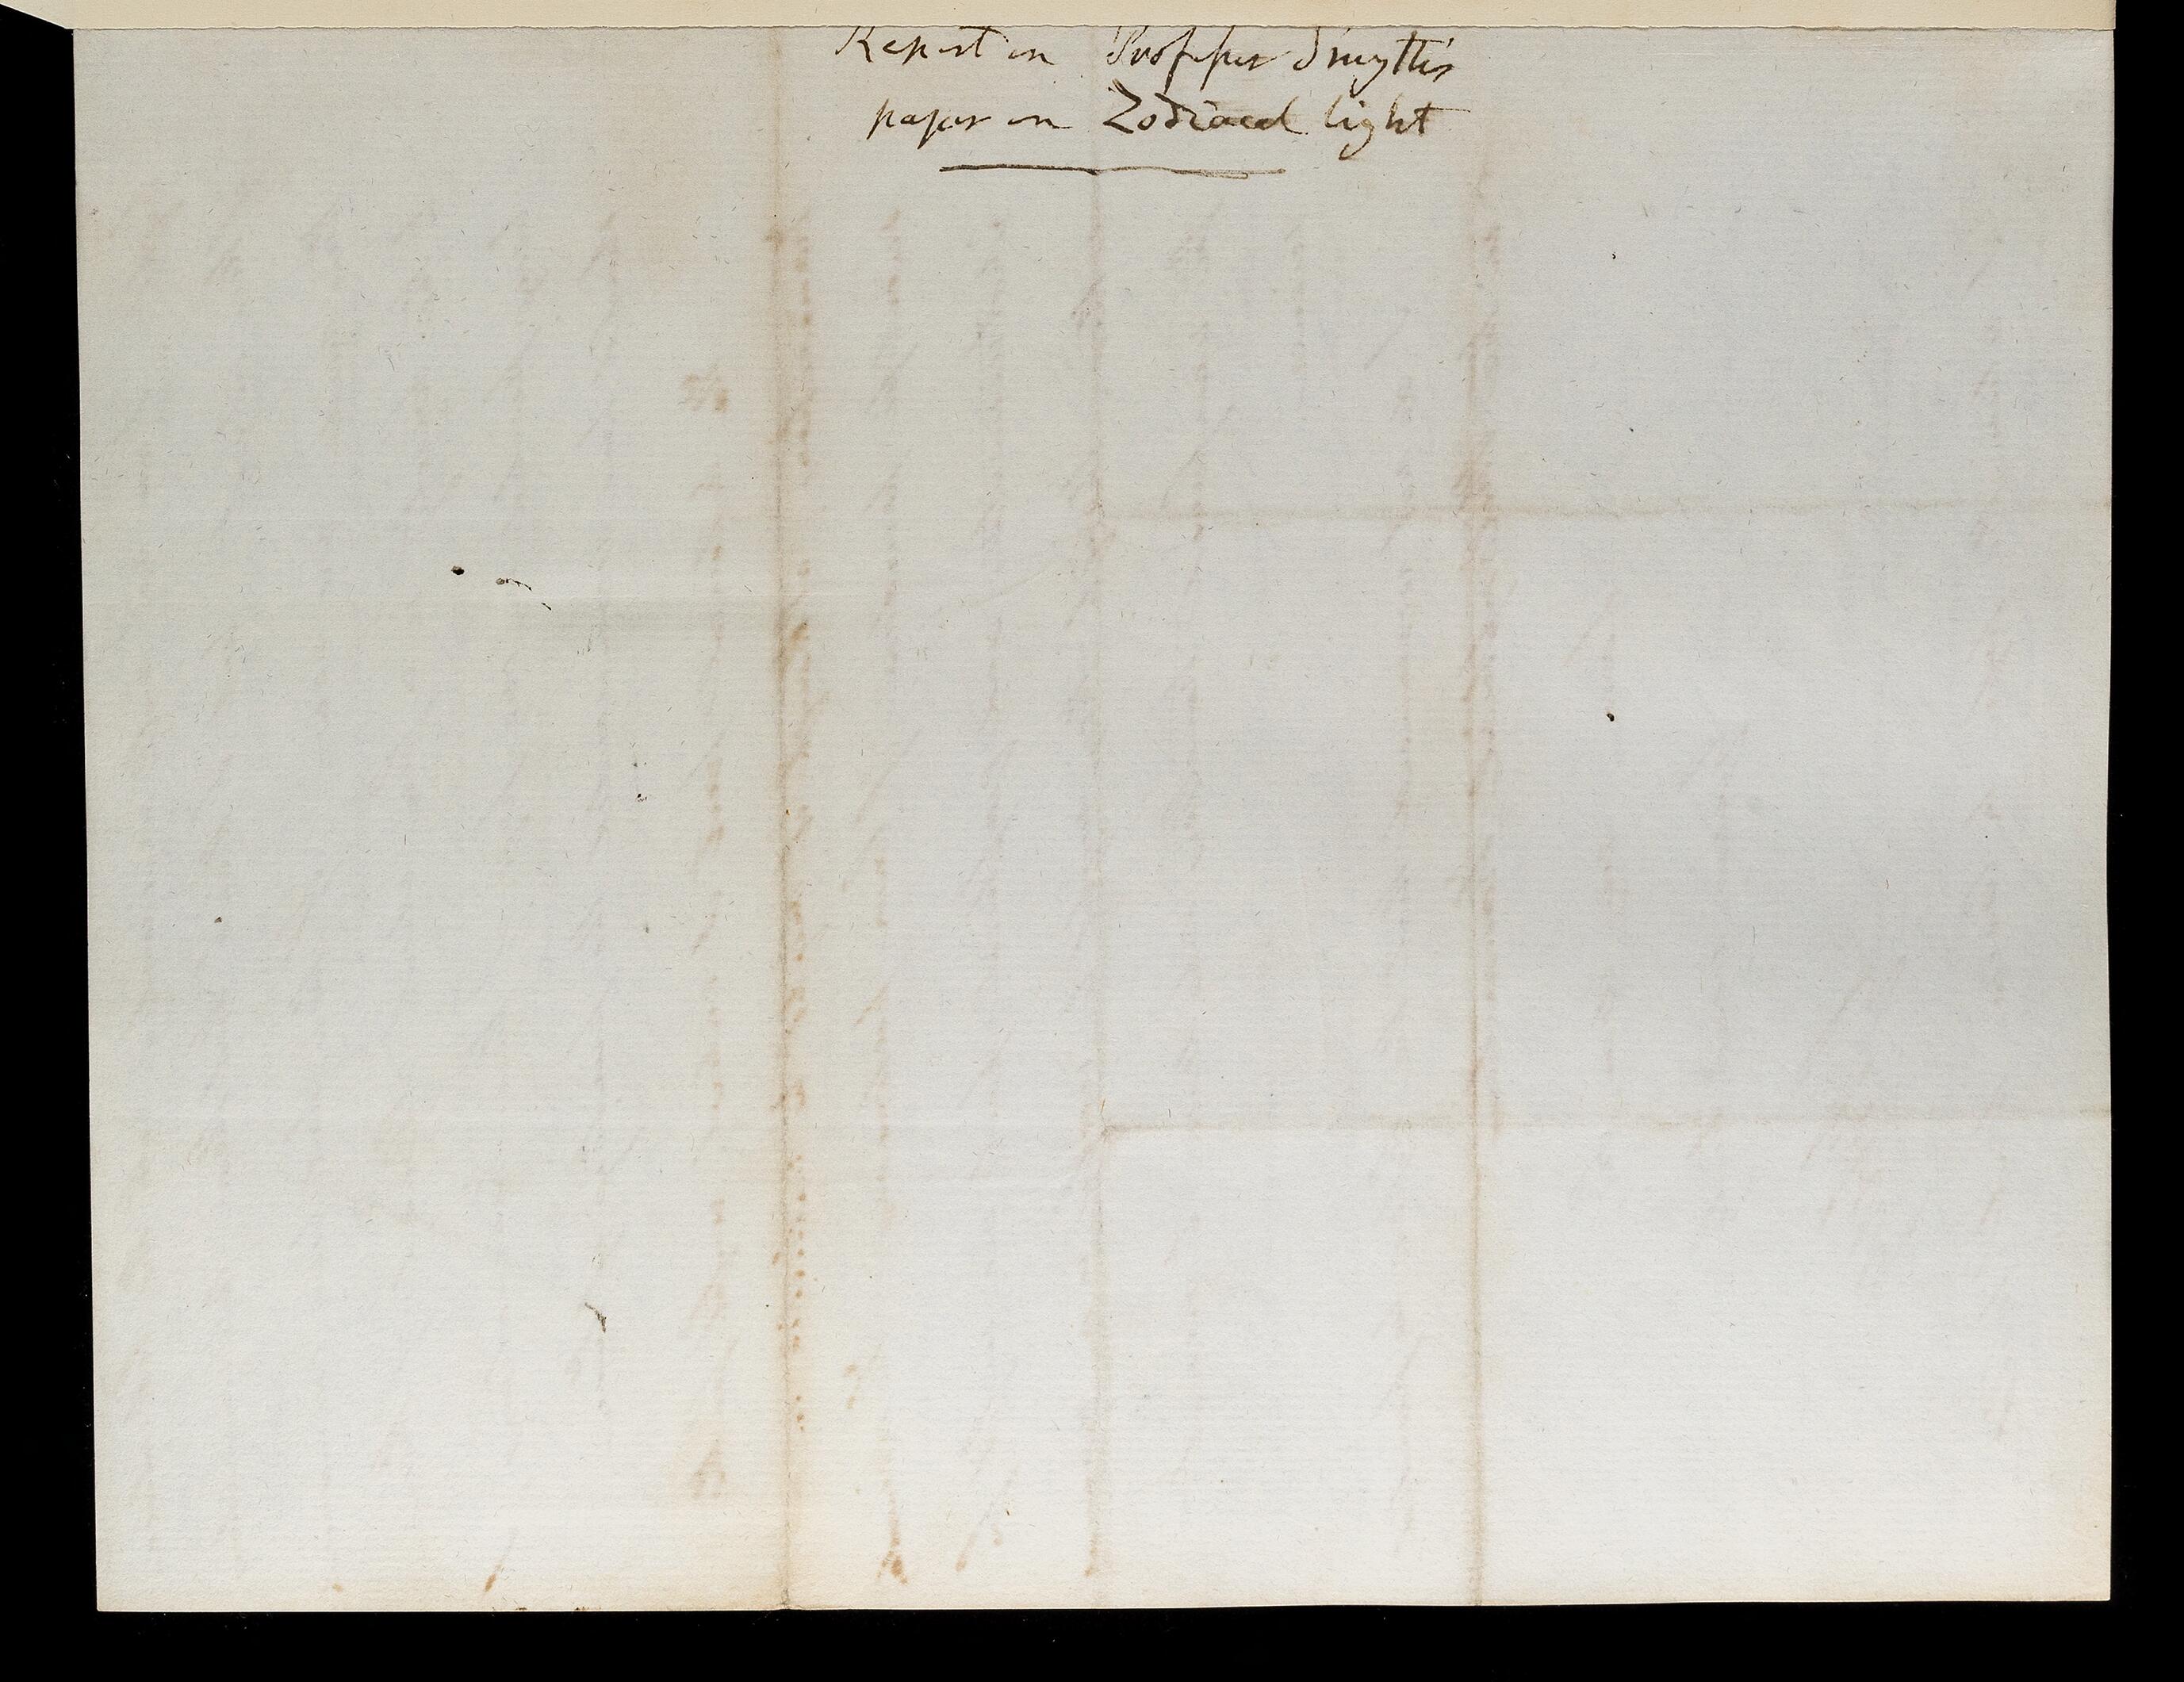 Report on Professor Smyth's
paper on Zodiacal light